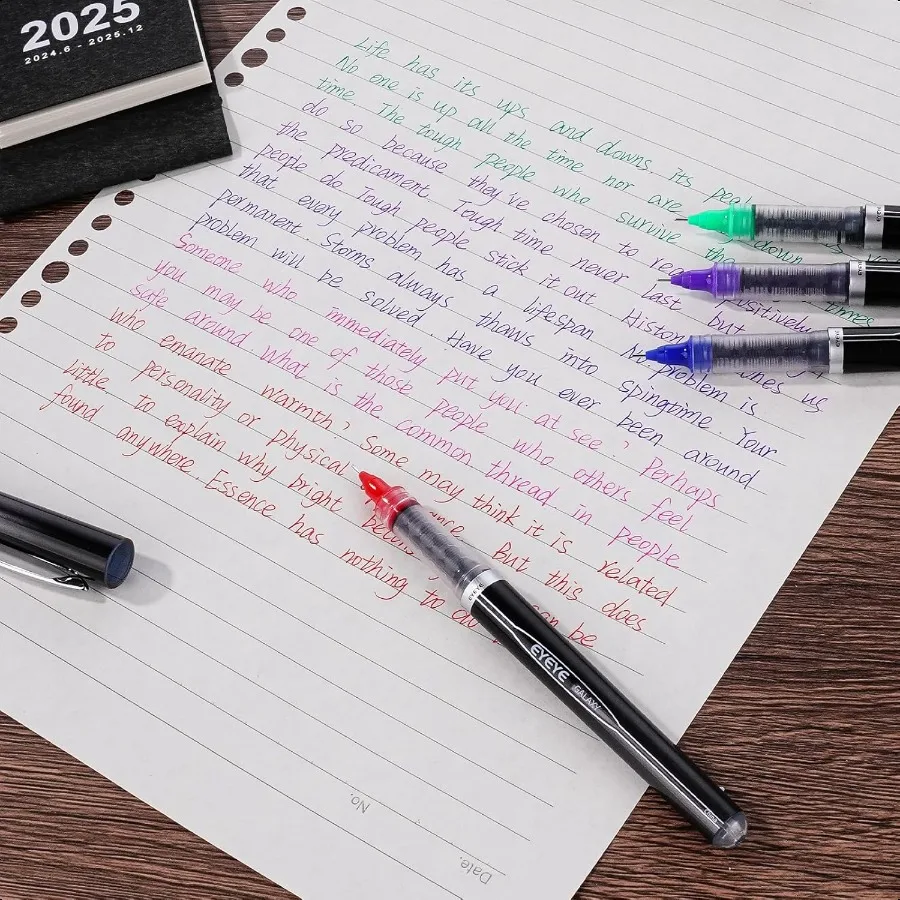 2025
2024.6 - 2025.12
Life has its ups and downs. its
No one is up all the time nor are down
time. The tough people who survive times
do so because they've chosen to
the predicament. Tough time never last but
people do. Tough people stick it out. us
that every problem has a lifespan No problem is
permanent. Storms always thaws into spingtime. Your
problem will be solved. Have you ever been around
Someone who mmediately put you at see? Perhaps
you may be one of those people who others feel
safe around what is the common thread in people
who emanate warmth, Some may think it is related
To personality or physical But this does
little to explain why bright can be
found anywhere. Essence has nothing to do
EYEYE GALAXY
EYEYE
No.
Date.